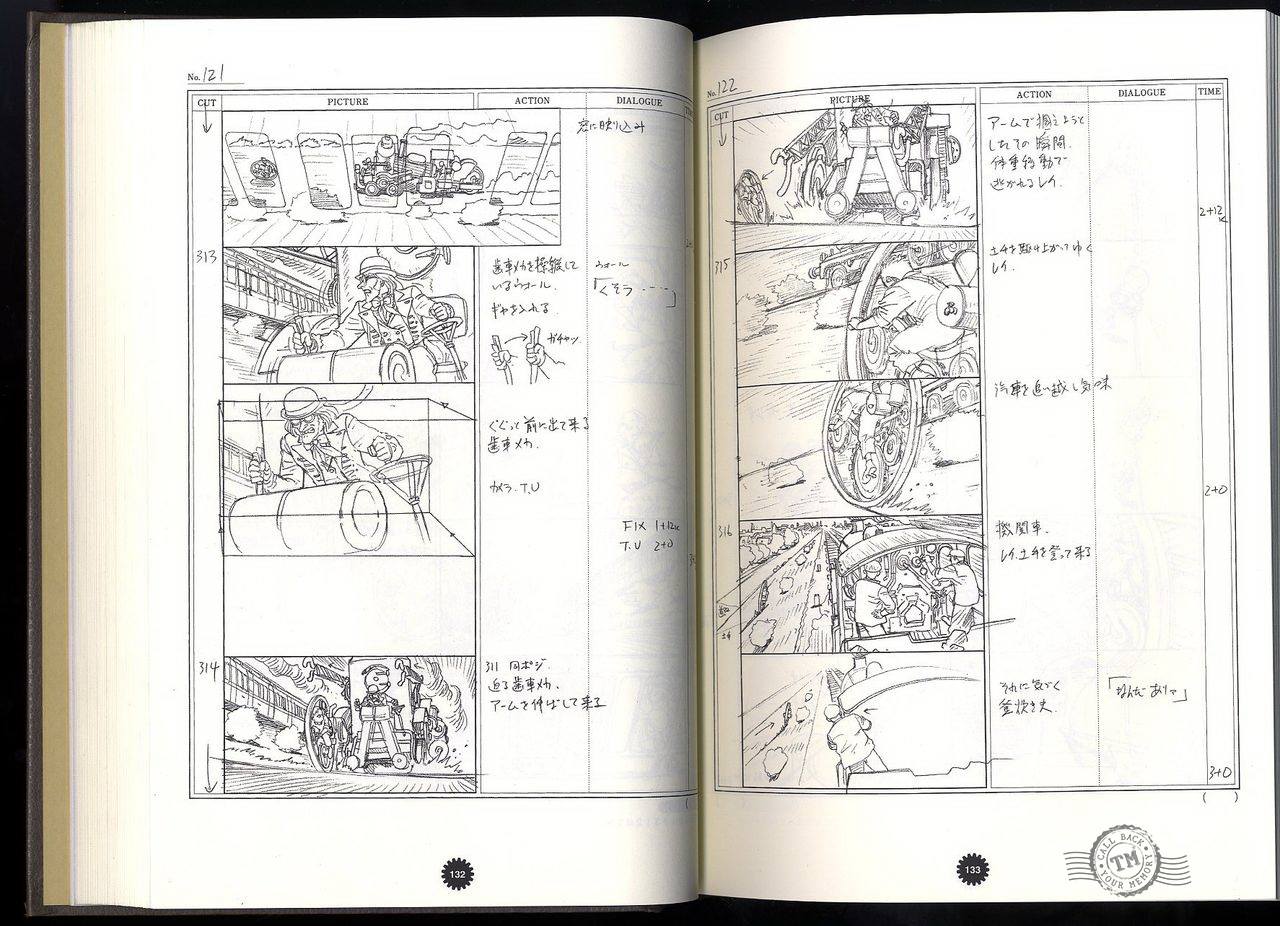 No. 121
CUT PICTURE ACTION DIALOGUE
窓に映り込み
313
歯車メカを操縦して
いるウォール.
ギヤを入れる.
ガチャッ
ウォール
「くそう・・・・」
ぐぐっと前に出て来る
歯車メカ.
カメラ. T.U
FIX 1+12K
T.U 2+0
314
311 同ポジ.
迫る歯車メカ.
アームを伸ばして来る
132
No. 122
CUT PICTURE ACTION DIALOGUE TIME
アームで捕えようと
した その 瞬間.
体重移動で
逃がれるレイ.
2+12K
315
土手を駆け上がってゆく
レイ.
汽車を追い越し気味
2+0
316
機関車.
レイ、土手を登って来る
土手
それに気づく
釜炊き夫.
「なんだ ありゃ」
3+0
( )
133
CALL BACK
TM
YOUR MEMORY